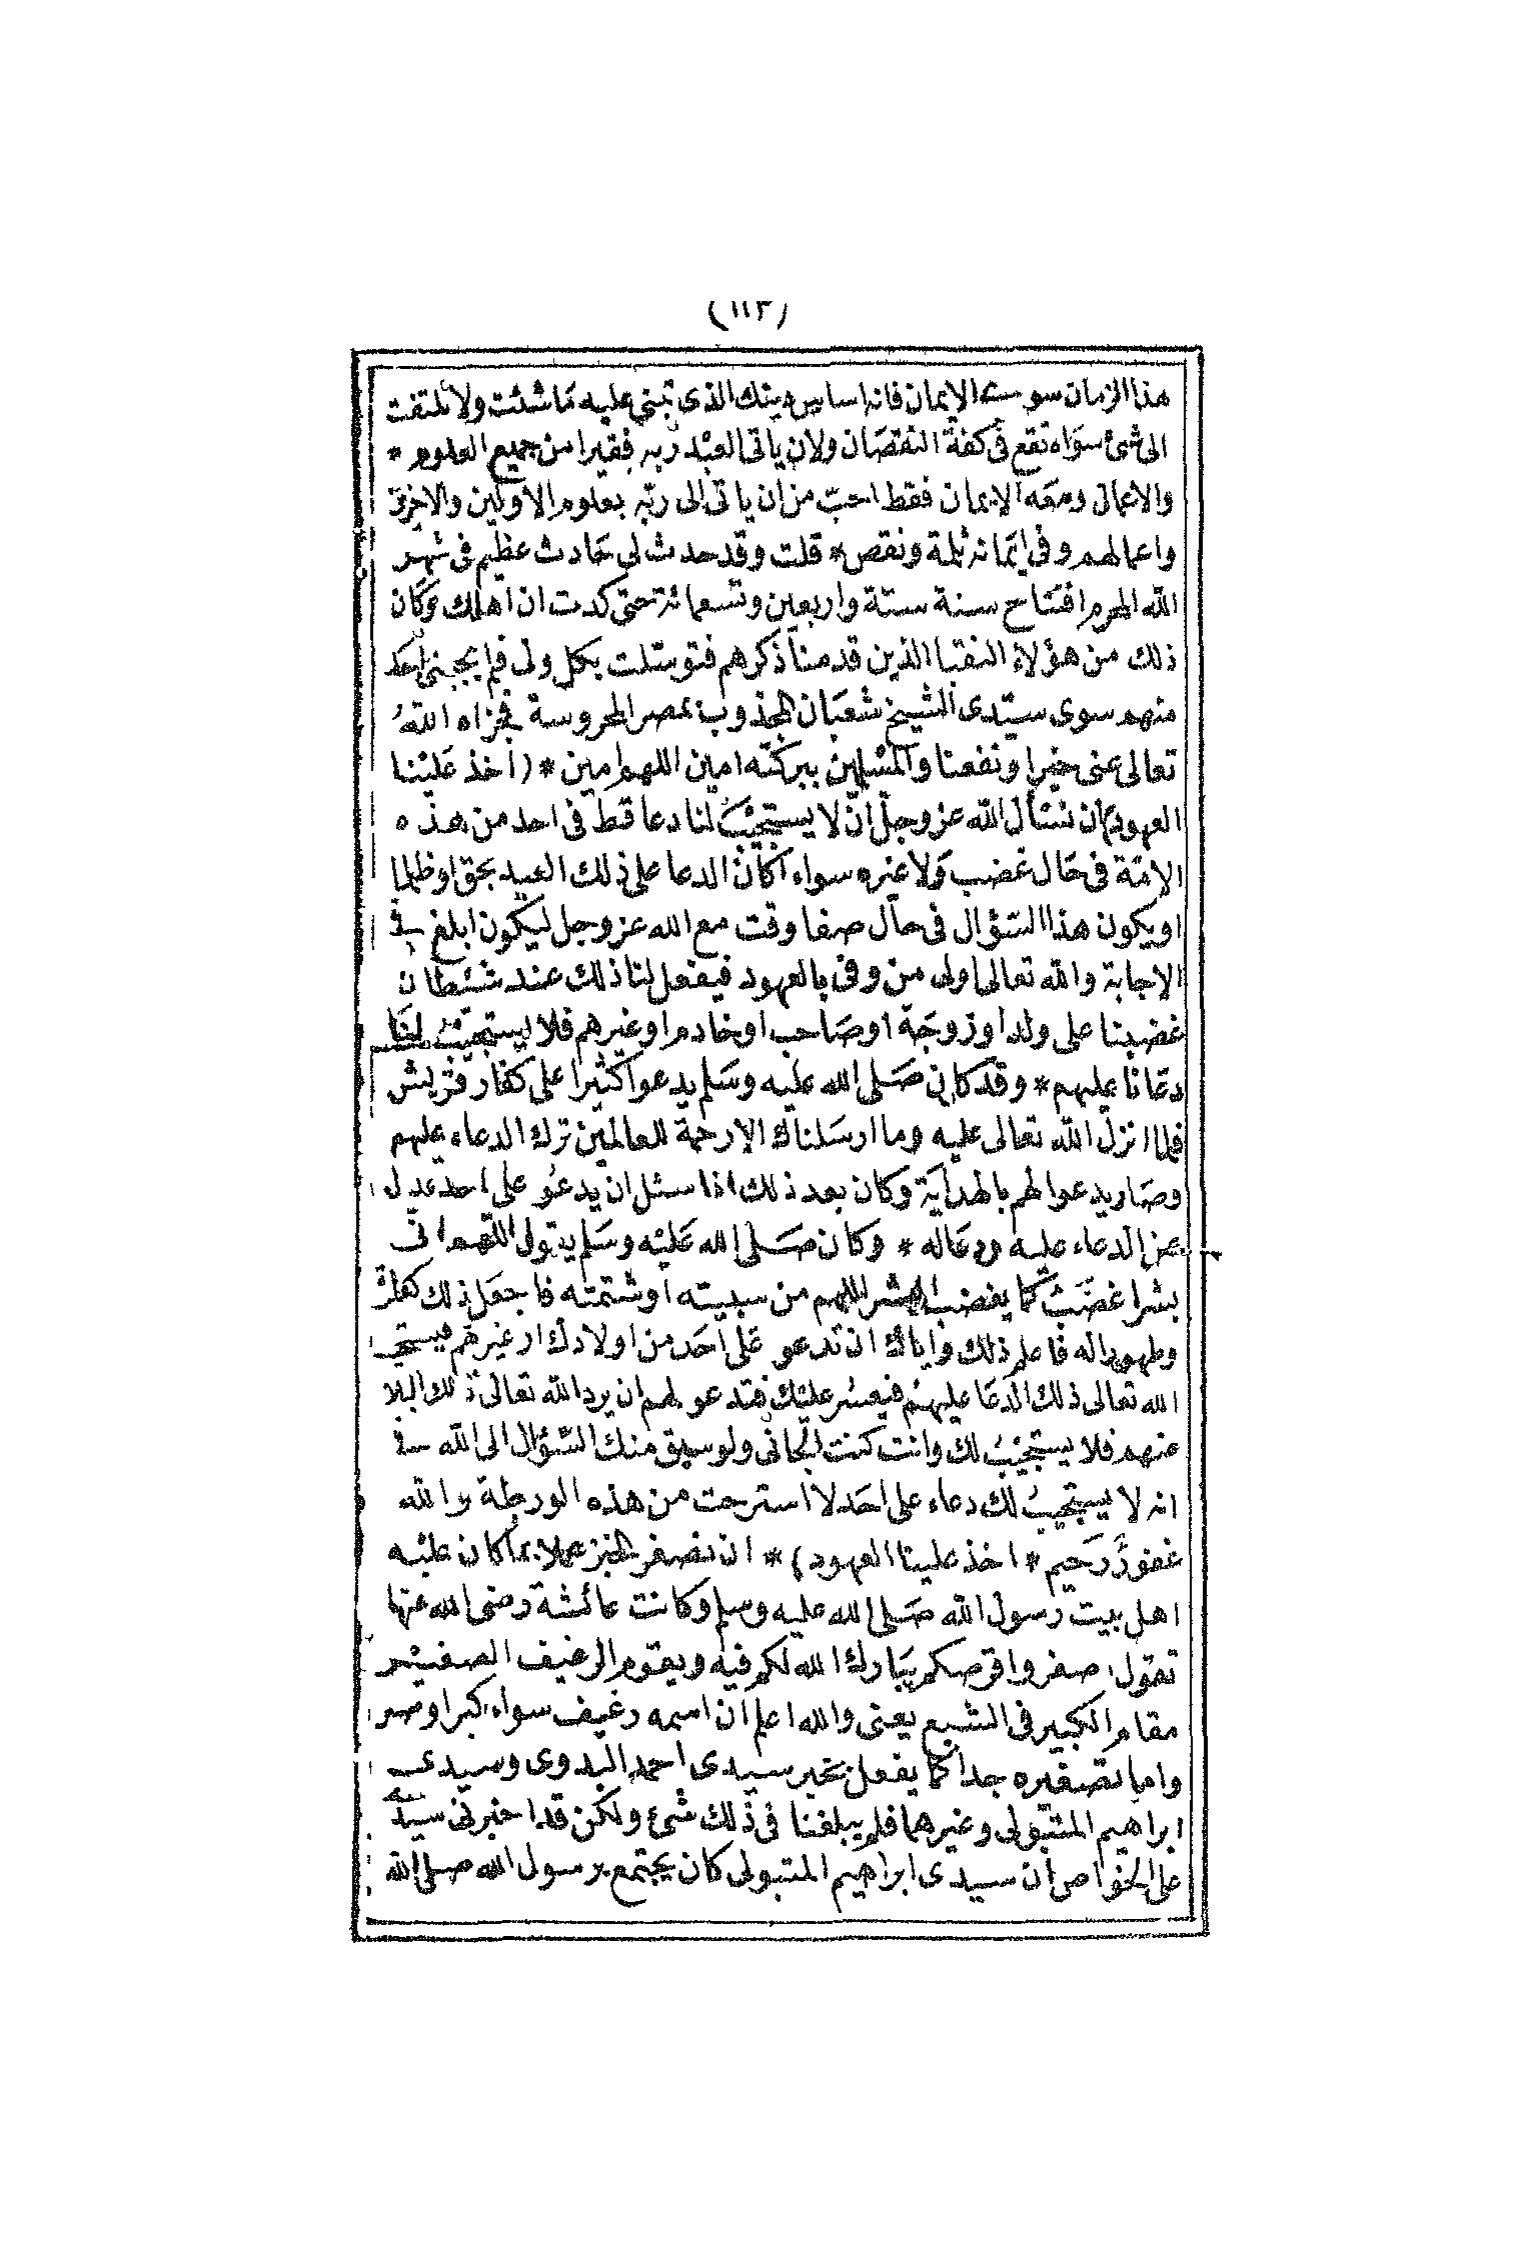 (١١٣)
هذا الزمان سوى الايمان فانه اساس دينك الذى تبنى عليه ما شئت ولا تلتفت
الى شئ سواه تقع فى كفة النقصان ولان ياتى العبد ربه فقيرا من جميع العلوم *
والاعمال ومعه الايمان فقط احب من ان ياتى الى ربه بعلوم الاولين والاخرين
واعمالهم وفى ايمانه ثلمة ونقص * قلت وقد حدث لى حادث عظيم فى شهر
الله المحرم افتتاح سنة ستة واربعين وتسعمائة حتى كدت ان اهلك وكان
ذلك من هؤلاء النقبا الذين قدمنا ذكرهم فتوسلت بكل ولى فلم يجبنى احد
منهم سوى سيدى الشيخ شعبان المجذوب بمصر المحروسة فجزاه الله
تعالى عنى خيرا ونفعنا والمسلمين ببركته امين اللهم امين * (اخذ علينا
العهود) ان نسأل الله عز وجل ان لا يستجيب لنا دعا قط فى احد من هذه
الامة فى حال غضب ولا غيره سواء اكان الدعا على ذلك العبد بحق او ظلما
او يكون هذا السؤال فى حال صفا وقت مع الله عز وجل ليكون ابلغ فى
الاجابة والله تعالى اولى من وفى بالعهود فيفعل لنا ذلك عند شئطان
غضبنا على ولد او زوجة او صاحب او خادم او غيرهم فلا يستجيب لنا
دعانا عليهم * وقد كان صلى الله عليه وسلم يدعو كثيرا على كفار قريش
فلما انزل الله تعالى عليه وما ارسلناك الا رحمة للعالمين ترك الدعاء عليهم
وصار يدعو لهم بالهداية وكان بعد ذلك اذا سئل ان يدعو على احد عدل
عن الدعاء عليه ودعا له * وكان صلى الله عليه وسلم يقول اللهم انى
بشر اغضب كما يغضب البشر اللهم من سببته او شتمته فاجعل ذلك كفارة
وطهورا له فاعلم ذلك واياك ان تدعو على احد من اولادك او غيرهم فيستجيب
الله تعالى ذلك الدعا عليهم فيعسر عليك فتدعو لهم ان يرد الله تعالى ذلك البلا
عنهم فلا يستجيب لك وانت كنت الجانى ولو سبق منك السؤال الى الله فى
انه لا يستجيب لك دعاء على احد لاسترحت من هذه الورطة والله
غفور رحيم * اخذ علينا العهود) * ان نصغر الخبز عملا بما كان عليه
اهل بيت رسول الله صلى الله عليه وسلم وكانت عائشة رضى الله عنها
تقول صغروا قرصكم يبارك الله لكم فيه ويقوم الرغيف الصغير
مقام الكبير فى الشبع يعنى والله اعلم ان اسمه رغيف سواء كبر او صغر
واما تصغيره جدا كما يفعل بخبز سيدى احمد البدوى وسيدى
ابراهيم المتبولى وغيرهما فلم يبلغنا فى ذلك شئ ولكن قد اخبرنى سيدى
على الخواص ان سيدى ابراهيم المتبولى كان يجتمع برسول الله صلى الله